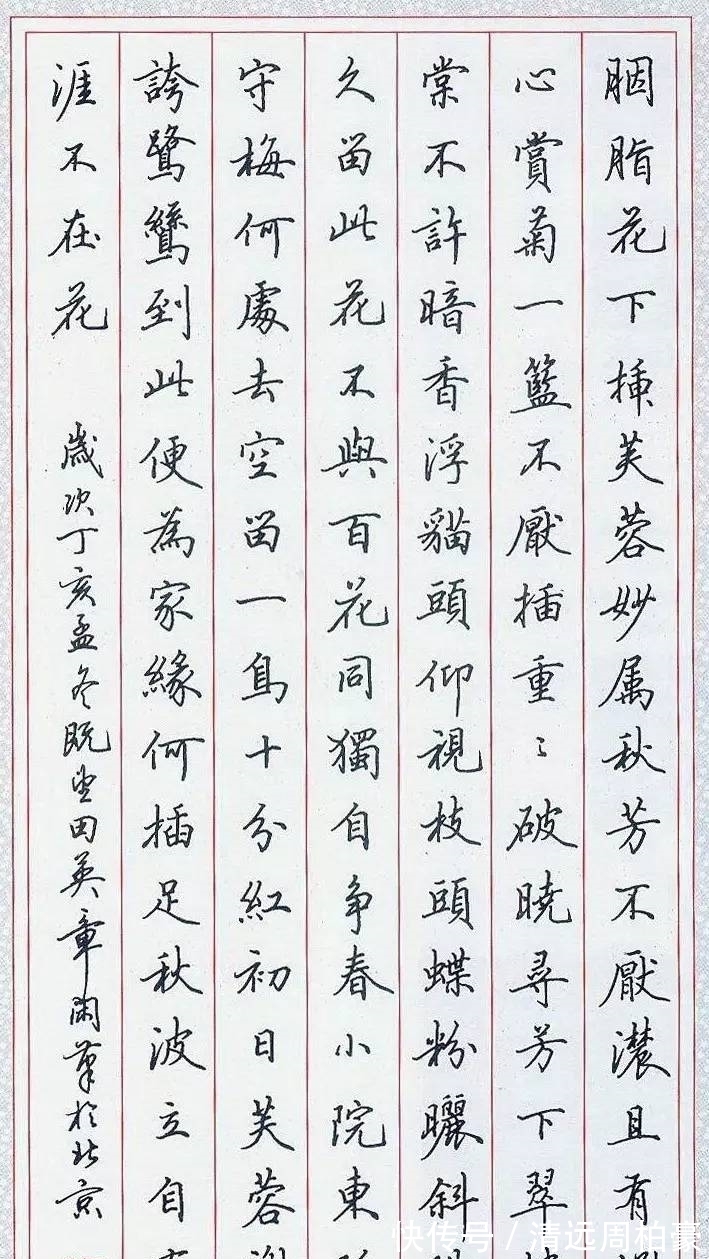 胭脂花下插芙蓉妙属秋芳不厭濃且有
心賞菊一籃不厭插重〻破曉尋芳下翠
棠不許暗香浮貓頭仰視枝頭蝶粉曬斜
久留此花不與百花同獨自争春小院東
守梅何處去空留一鳥十分紅初日芙蓉
誇鷺鷥到此便為家緣何插足秋波立自
涯不在花
歲次丁亥孟冬既望田英章閑筆於北京
快传号/清远周柏豪